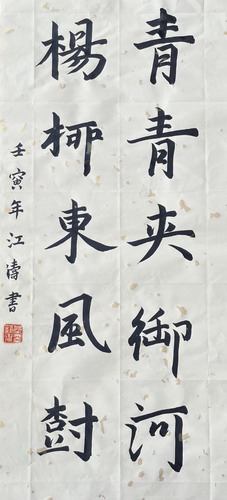 青青夾御河
楊柳東風樹
壬寅年江濤書